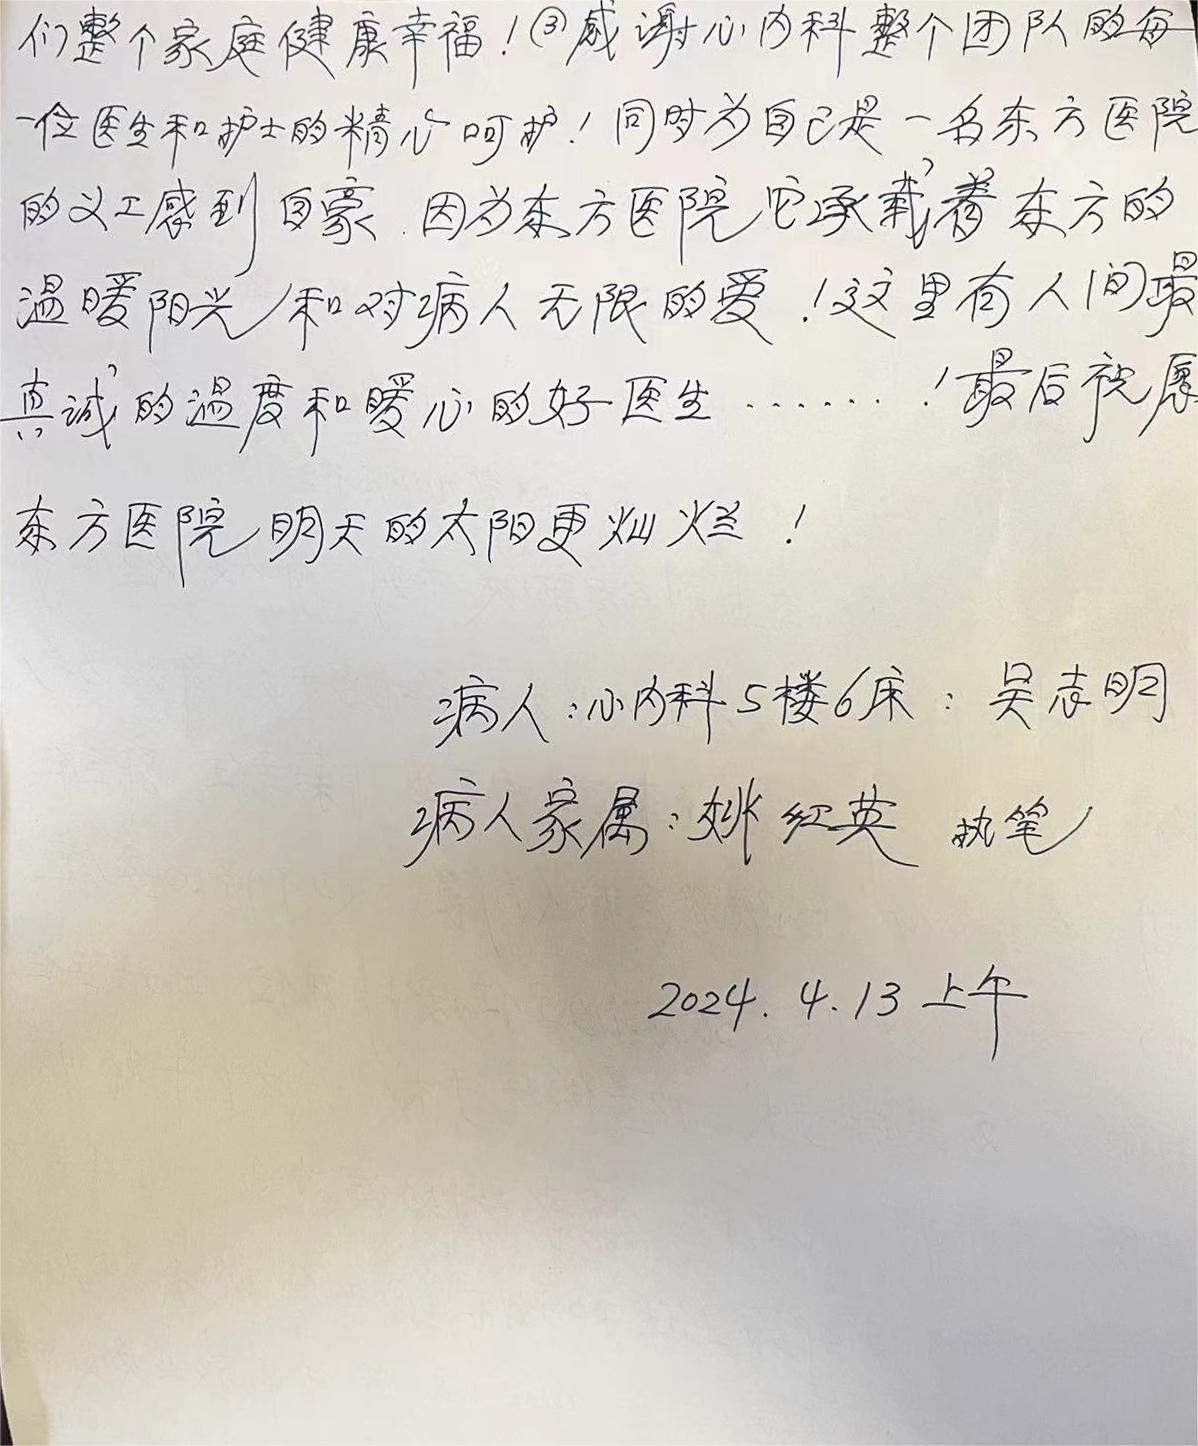 们整个家庭健康幸福！③感谢心内科整个团队的每
一位医生和护士的精心呵护！同时为自己是一名东方医院
的义工感到自豪.因为东方医院它承载着东方的
温暖阳光和对病人无限的爱！这里有人间最
真诚的温度和暖心的好医生……！最后祝愿
东方医院明天的太阳更灿烂！
病人：心内科5楼6床：吴志明
病人家属：姚红英 执笔
2024.4.13上午